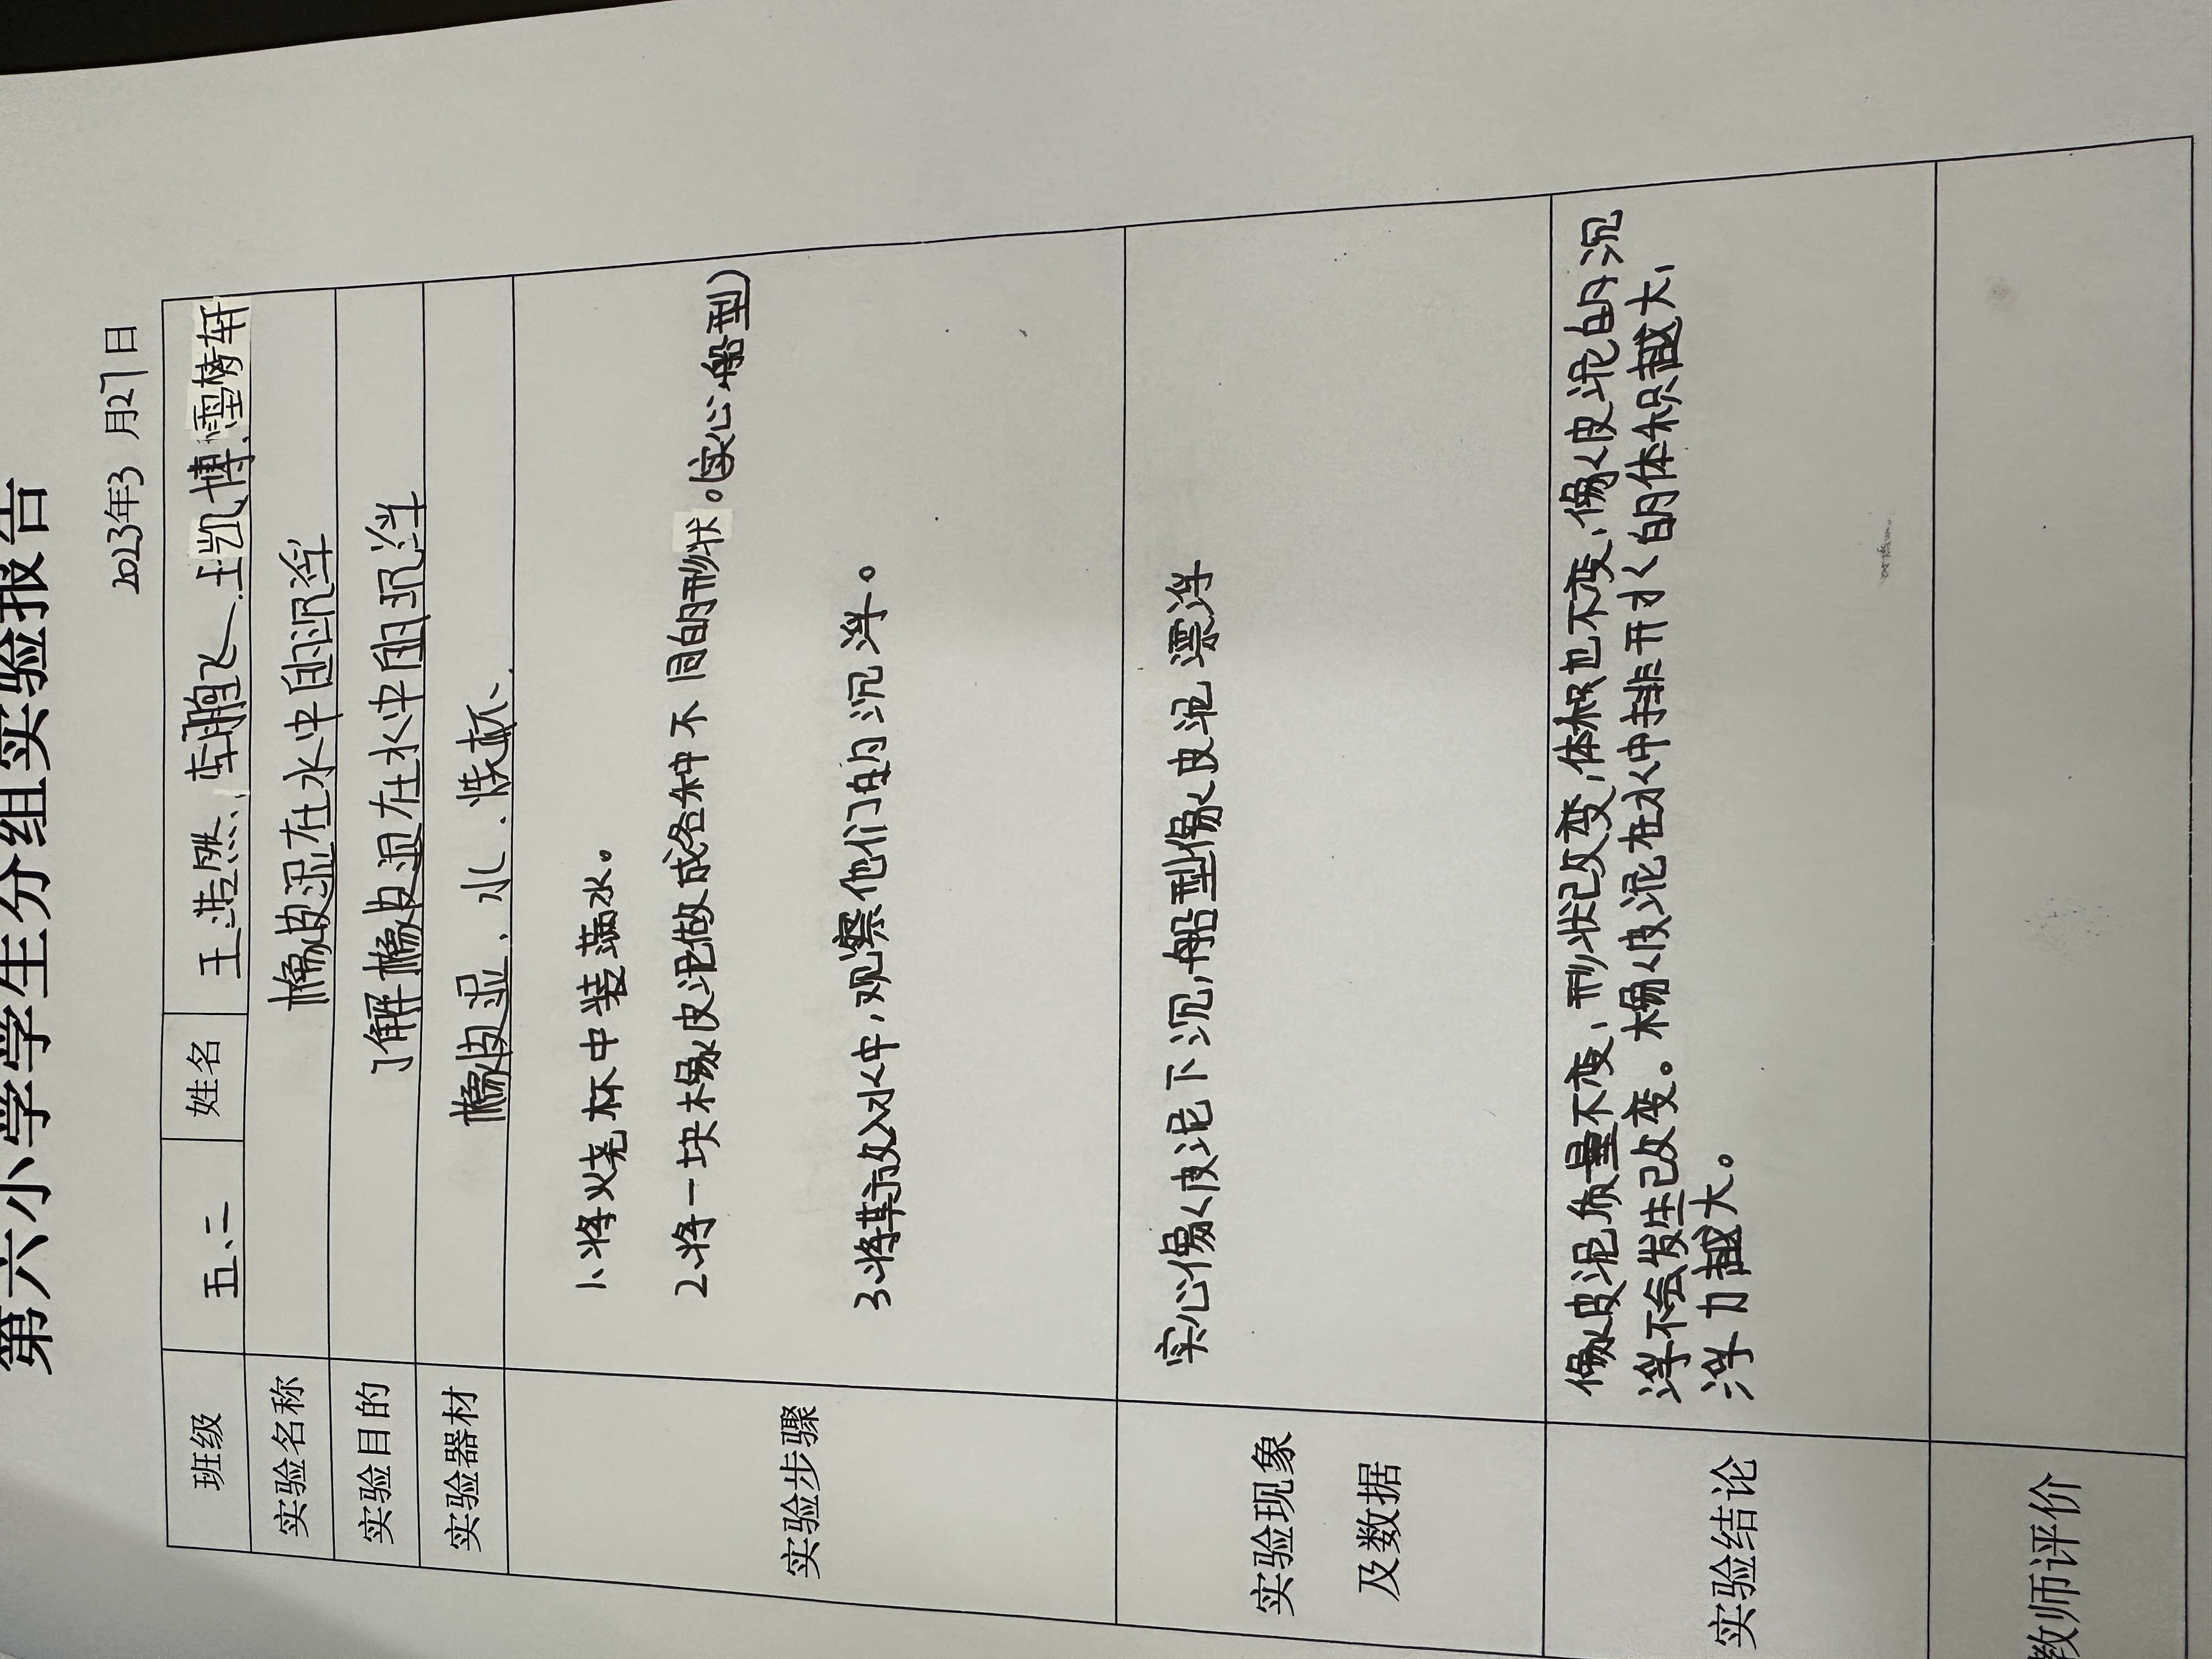 第六小学学生分组实验报告
2023年3月27日
班级 五、二 姓名 王浩然、车鹏飞、王凯博、雷梼轩
实验名称 橡皮泥在水中的沉浮
实验目的 了解橡皮泥在水中的沉浮
实验器材 橡皮泥、水、烧杯、
实验步骤
1、将烧杯中装满水。
2、将一块橡皮泥做成各种不同的形状。(实心、船型)
3、将其放入水中，观察他们的沉浮。
实验现象
及数据
实心像皮泥下沉，船型像皮泥漂浮
实验结论
像皮泥质量不变，形状改变，体积也不变，像皮泥的沉
浮不会发生改变。橡皮泥在水中排开水的体积越大，
浮力越大。
教师评价